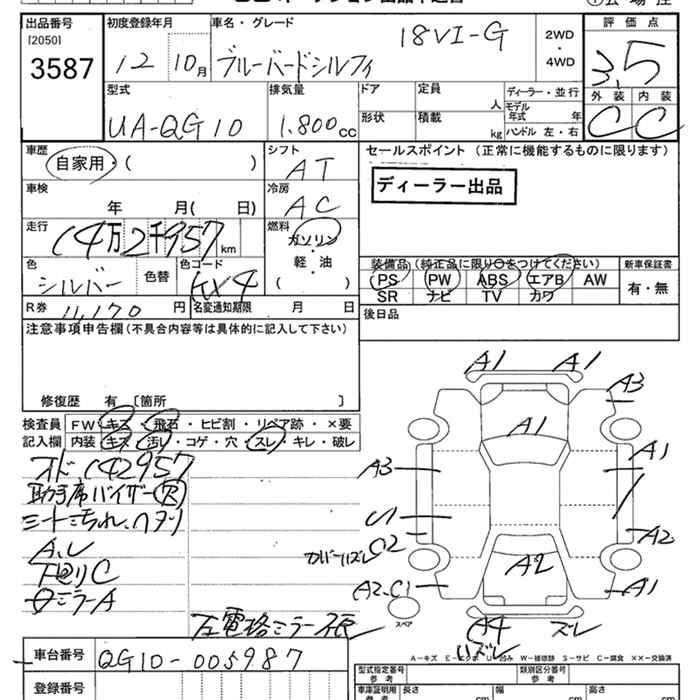 出品番号 初度登録年月 車名・グレード 18VI-G 2WD・4WD 評価点
[2050]
3587 12 10月 ブルーバードシルフィ 3.5
型式 排気量 ドア 定員 人 ディーラー・並行 外装 内装
UA-QG10 1.800cc 形状 積載 kg モデル年式 年 ハンドル 左・右 C C
車歴 自家用・( ) シフト AT セールスポイント (正常に機能するものに限ります)
車検 年 月( 日) 冷房 AC ディーラー出品
走行 14万2千957km 燃料 ガソリン・軽・油 ( )
色 シルバー 色替 色コード KX4
装備品 (純正品に限り○をつけてください) 新車保証書
PS PW ABS エアB AW 有・無
SR ナビ TV カワ
R券 11,170円 名変通知期限 月 日 後日品
注意事項申告欄 (不具合内容等は具体的に記入して下さい)
修復歴 有 [箇所 ]
検査員 FW キズ・飛石・ヒビ割・リペア跡・×要
記入欄 内装 キズ・汚レ・コゲ・穴・スレ・キレ・破レ
A1 A1
A3
A1
A3 A1
U1
A2
A2
A2.C1 A1
スペア
A4 ズレ
オド、142957
助手席バイザー
シート汚れ、ヘタリ
下廻りC
ミラーA
左電格ミラー
A-キズ E-エクボ U-凹み W-補修跡 S-サビ C-腐食 ××-交換済
車台番号 QG10-005987
登録番号
型式指定番号 参考 類別区分番号 参考
車庫証明用 参考 長さ cm 幅 cm 高さ cm